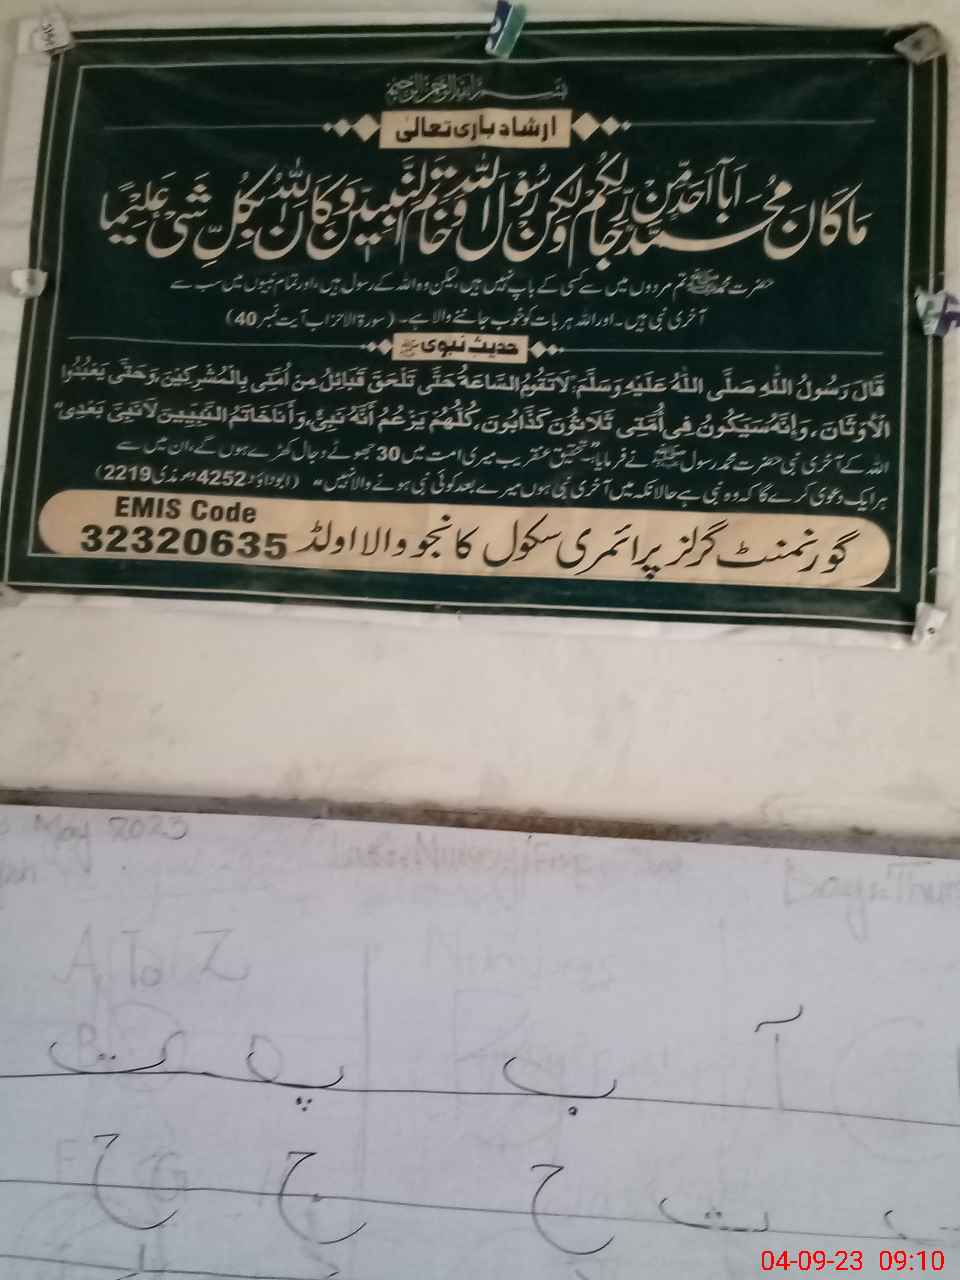 بسم الله الرحمن الرحيم
ارشاد باری تعالیٰ
مَا كَانَ مُحَمَّدٌ اَبَآ اَحَدٍ مِّنْ رِّجَالِكُمْ وَلٰكِنْ رَّسُوْلَ اللّٰهِ وَخَاتَمَ النَّبِيّٖنَ وَكَانَ اللّٰهُ بِكُلِّ شَىْءٍ عَلِيْمًا
حضرت محمد ﷺ تم مردوں میں سے کسی کے باپ نہیں ہیں، لیکن وہ اللہ کے رسول ہیں، اور تمام نبیوں میں سب سے
آخری نبی ہیں۔ اور اللہ ہر بات کو خوب جاننے والا ہے۔ (سورۃ الاحزاب آیت نمبر 40)
حدیث نبوی ﷺ
قَالَ رَسُولُ اللهِ صَلَّى اللهُ عَلَيْهِ وَسَلَّمَ: لَا تَقُومُ السَّاعَةُ حَتَّى تَلْحَقَ قَبَائِلُ مِنْ أُمَّتِي بِالْمُشْرِكِينَ، وَحَتَّى يَعْبُدُوا
الْأَوْثَانَ، وَإِنَّهُ سَيَكُونُ فِي أُمَّتِي ثَلَاثُونَ كَذَّابُونَ، كُلُّهُمْ يَزْعُمُ أَنَّهُ نَبِيٌّ، وَأَنَا خَاتَمُ النَّبِيِّينَ لَا نَبِيَّ بَعْدِي"
اللہ کے آخری نبی حضرت محمد رسول ﷺ نے فرمایا "تحقیق عنقریب میری امت میں 30 جھوٹے دجال کھڑے ہوں گے، ان میں سے
ہر ایک دعوی کرے گا کہ وہ نبی ہے حالانکہ میں آخری نبی ہوں میرے بعد کوئی نبی ہونے والا نہیں" (ابوداؤد 4252، ترمذی 2219)
گورنمنٹ گرلز پرائمری سکول کانجو والا اولڈ
EMIS Code
32320635
May 2023
A To Z
آ ب پ ت
ث ج چ ح
04-09-23 09:10